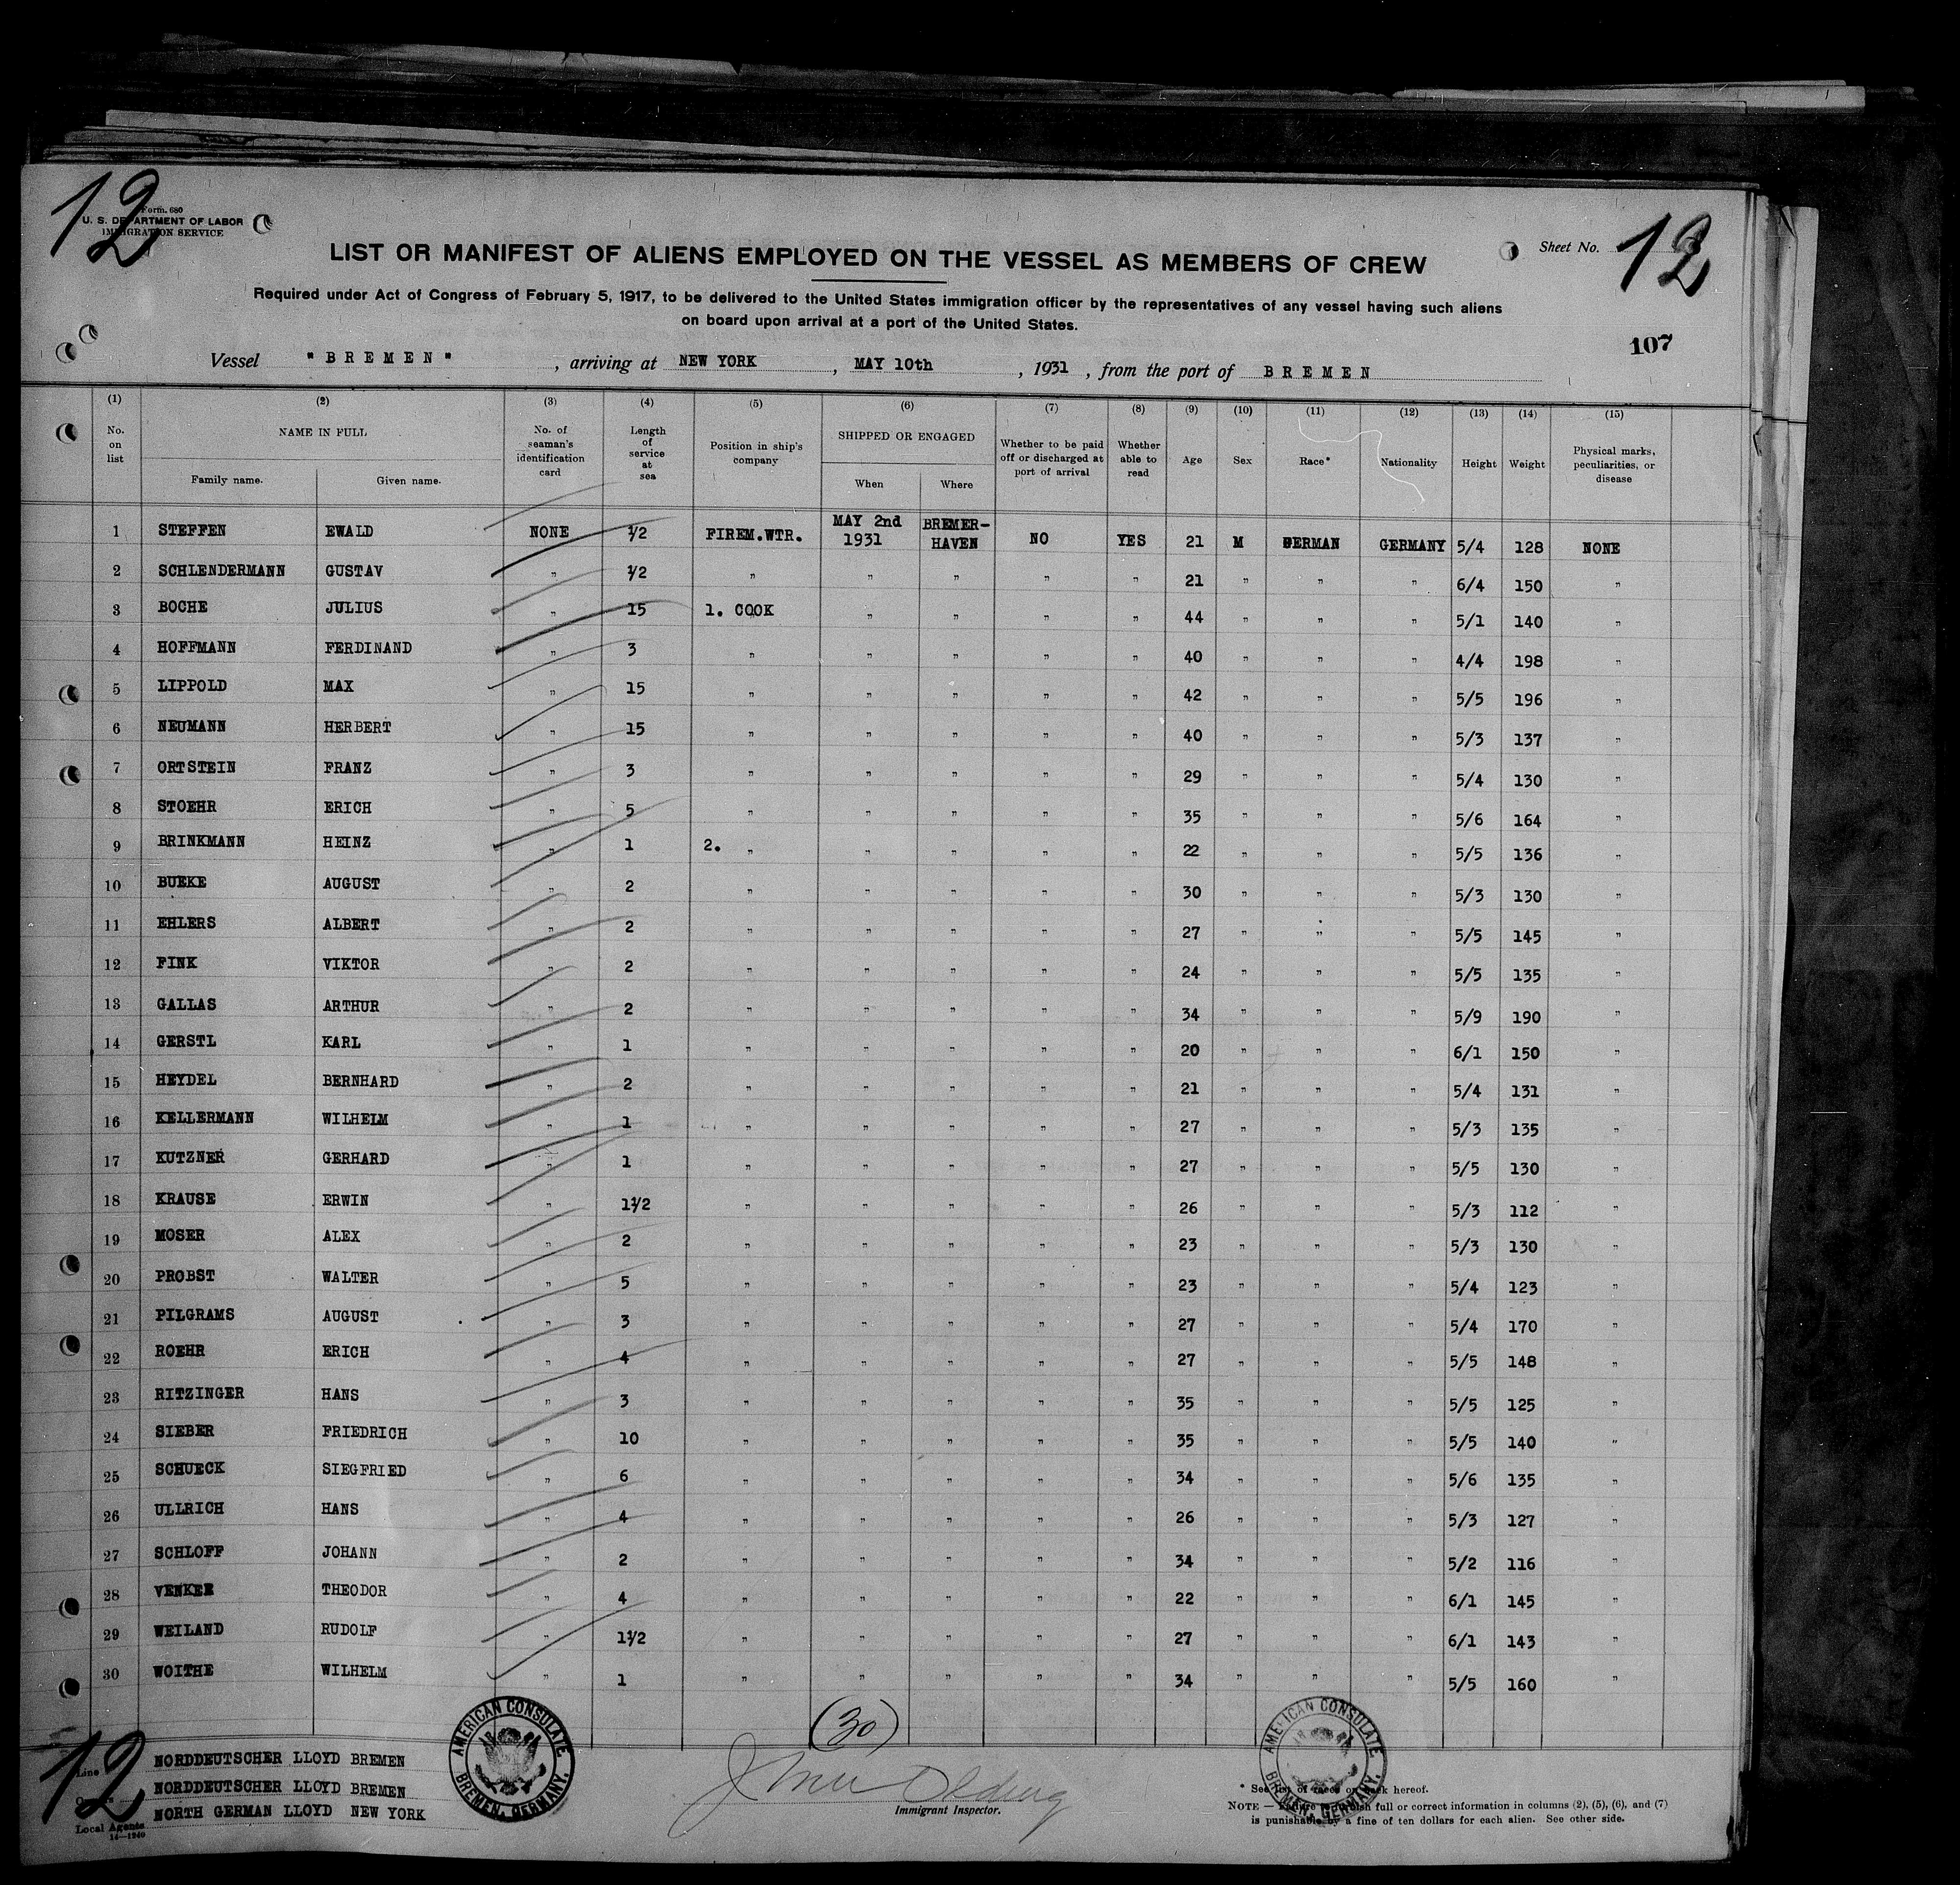 12
Form 680
U. S. DEPARTMENT OF LABOR
IMMIGRATION SERVICE
Sheet No. 12
LIST OR MANIFEST OF ALIENS EMPLOYED ON THE VESSEL AS MEMBERS OF CREW
Required under Act of Congress of February 5, 1917, to be delivered to the United States immigration officer by the representatives of any vessel having such aliens
on board upon arrival at a port of the United States.
107
Vessel "BREMEN", arriving at NEW YORK, MAY 10th, 1931, from the port of BREMEN
(1) (2) (3) (4) (5) (6) (7) (8) (9) (10) (11) (12) (13) (14) (15)
No. on list NAME IN FULL Family name. Given name. No. of seaman's identification card Length of service at sea Position in ship's company SHIPPED OR ENGAGED When Where Whether to be paid off or discharged at port of arrival Whether able to read Age Sex Race* Nationality Height Weight Physical marks, peculiarities, or disease
1 STEFFEN EWALD NONE 1/2 FIREM.WTR. MAY 2nd 1931 BREMER-HAVEN NO YES 21 M GERMAN GERMANY 5/4 128 NONE
2 SCHLENDERMANN GUSTAV " 1/2 " " " " " 21 " " " 6/4 150 "
3 BOCHE JULIUS " 15 1. COOK " " " " 44 " " " 5/1 140 "
4 HOFFMANN FERDINAND " 3 " " " " " 40 " " " 4/4 198 "
5 LIPPOLD MAX " 15 " " " " " 42 " " " 5/5 196 "
6 NEUMANN HERBERT " 15 " " " " " 40 " " " 5/3 137 "
7 ORTSTEIN FRANZ " 3 " " " " " 29 " " " 5/4 130 "
8 STOEHR ERICH " 5 " " " " " 35 " " " 5/6 164 "
9 BRINKMANN HEINZ " 1 2. " " " " " 22 " " " 5/5 136 "
10 BUEKE AUGUST " 2 " " " " " 30 " " " 5/3 130 "
11 EHLERS ALBERT " 2 " " " " " 27 " " " 5/5 145 "
12 FINK VIKTOR " 2 " " " " " 24 " " " 5/5 135 "
13 GALLAS ARTHUR " 2 " " " " " 34 " " " 5/9 190 "
14 GERSTL KARL " 1 " " " " " 20 " " " 6/1 150 "
15 HEYDEL BERNHARD " 2 " " " " " 21 " " " 5/4 131 "
16 KELLERMANN WILHELM " 1 " " " " " 27 " " " 5/3 135 "
17 KUTZNER GERHARD " 1 " " " " " 27 " " " 5/5 130 "
18 KRAUSE ERWIN " 1 1/2 " " " " " 26 " " " 5/3 112 "
19 MOSER ALEX " 2 " " " " " 23 " " " 5/3 130 "
20 PROBST WALTER " 5 " " " " " 23 " " " 5/4 123 "
21 PILGRAMS AUGUST " 3 " " " " " 27 " " " 5/4 170 "
22 ROEHR ERICH " 4 " " " " " 27 " " " 5/5 148 "
23 RITZINGER HANS " 3 " " " " " 35 " " " 5/5 125 "
24 SIEBER FRIEDRICH " 10 " " " " " 35 " " " 5/5 140 "
25 SCHUECK SIEGFRIED " 6 " " " " " 34 " " " 5/6 135 "
26 ULLRICH HANS " 4 " " " " " 26 " " " 5/3 127 "
27 SCHLOFF JOHANN " 2 " " " " " 34 " " " 5/2 116 "
28 VENKER THEODOR " 4 " " " " " 22 " " " 6/1 145 "
29 WEILAND RUDOLF " 1 1/2 " " " " " 27 " " " 6/1 143 "
30 WOITHE WILHELM " 1 " " " " " 34 " " " 5/5 160 "
(30)
12
Line NORDDEUTSCHER LLOYD BREMEN
NORDDEUTSCHER LLOYD BREMEN
Local Agents NORTH GERMAN LLOYD NEW YORK
14—1240
AMERICAN CONSULATE BREMEN, GERMANY.
Immigrant Inspector.
AMERICAN CONSULATE BREMEN, GERMANY.
* See list of races on back hereof.
NOTE — Failure to furnish full or correct information in columns (2), (5), (6), and (7)
is punishable by a fine of ten dollars for each alien. See other side.